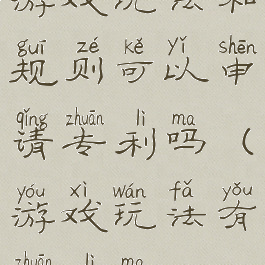 游戏玩法和
guī zé kě yǐ shēn
规则可以申
qǐng zhuān lì ma
请专利吗（
yóu xì wán fǎ yǒu
游戏玩法有
zhuān lì ma